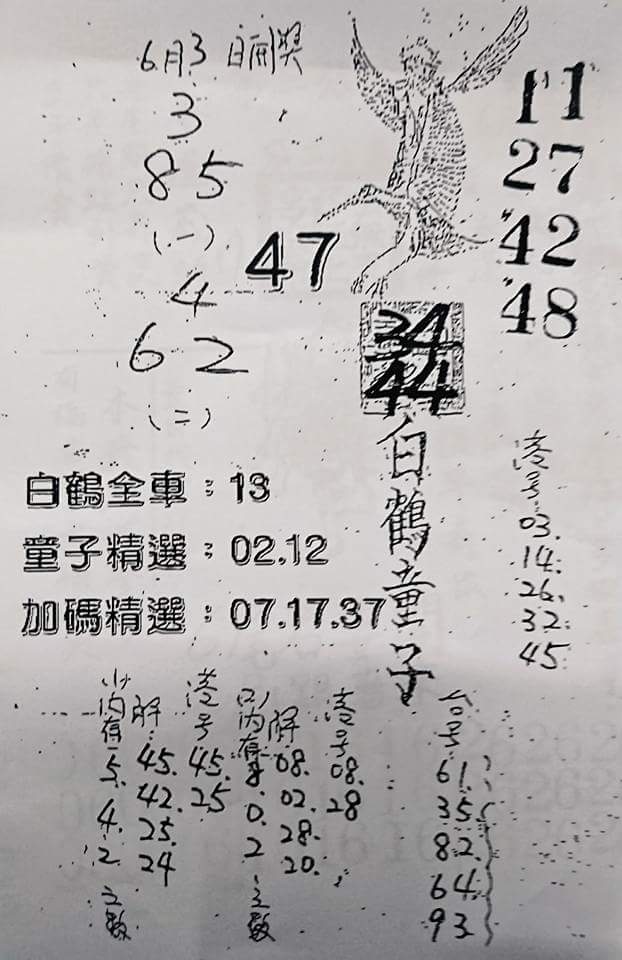 6月3日開獎
3
85
(一)
4
62
(二)
47
11
27
42
48
34
44
白鶴童子
白鶴全車：13
童子精選：02.12
加碼精選：07.17.37
港号
03.
14.
26.
32.
45.
内有
5.
4.
2
之数
解
45.
42.
25.
24
港号
45.
25
内有
8
0.
2
之数
解
08.
02.
28.
20.
港号
08.
28
台号
61.
35.
82.
64.
93